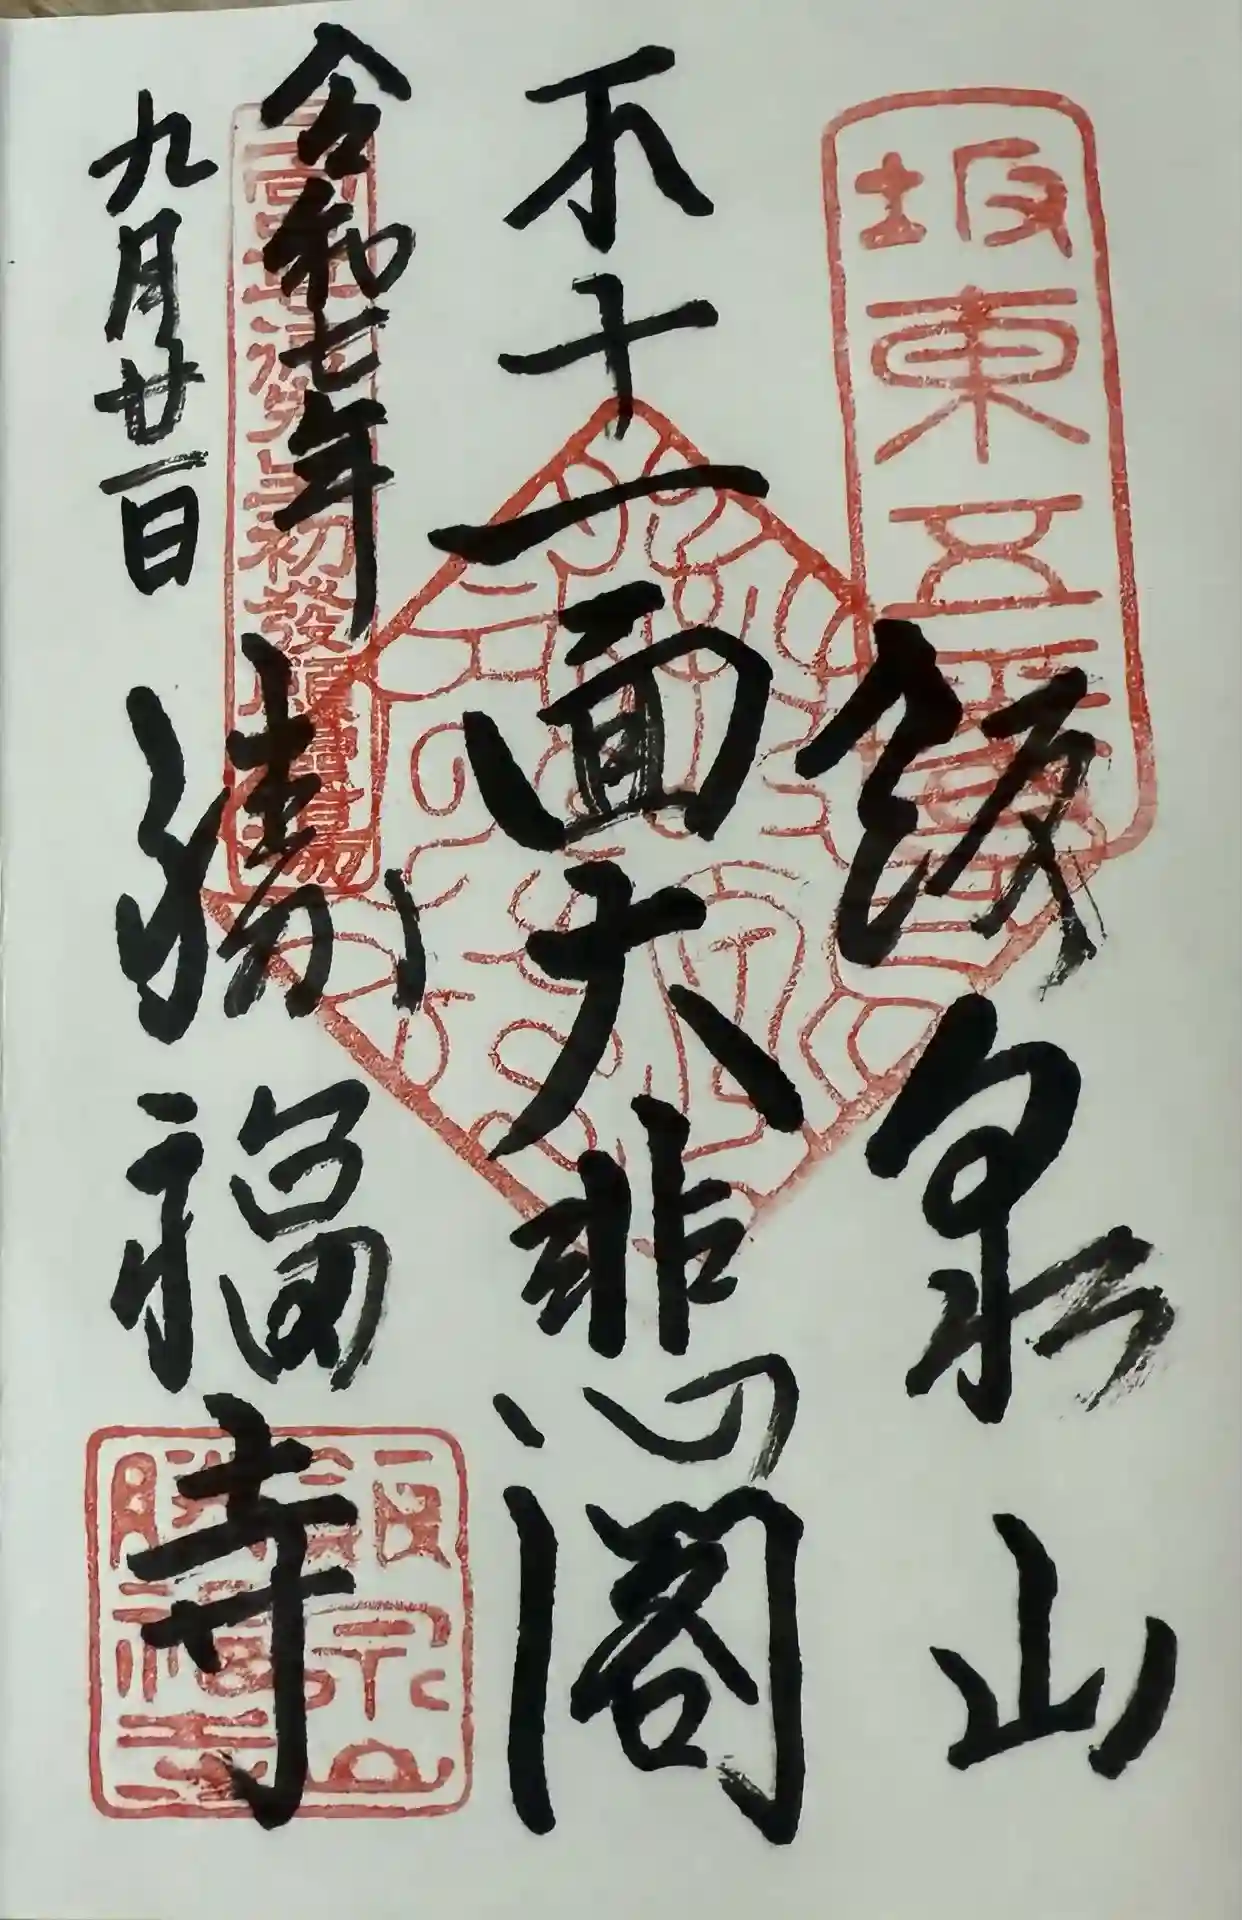 坂東五番
飯泉山
不十一面大悲閣
令和七年
九月廿一日
勝福寺
飯泉山
勝福寺